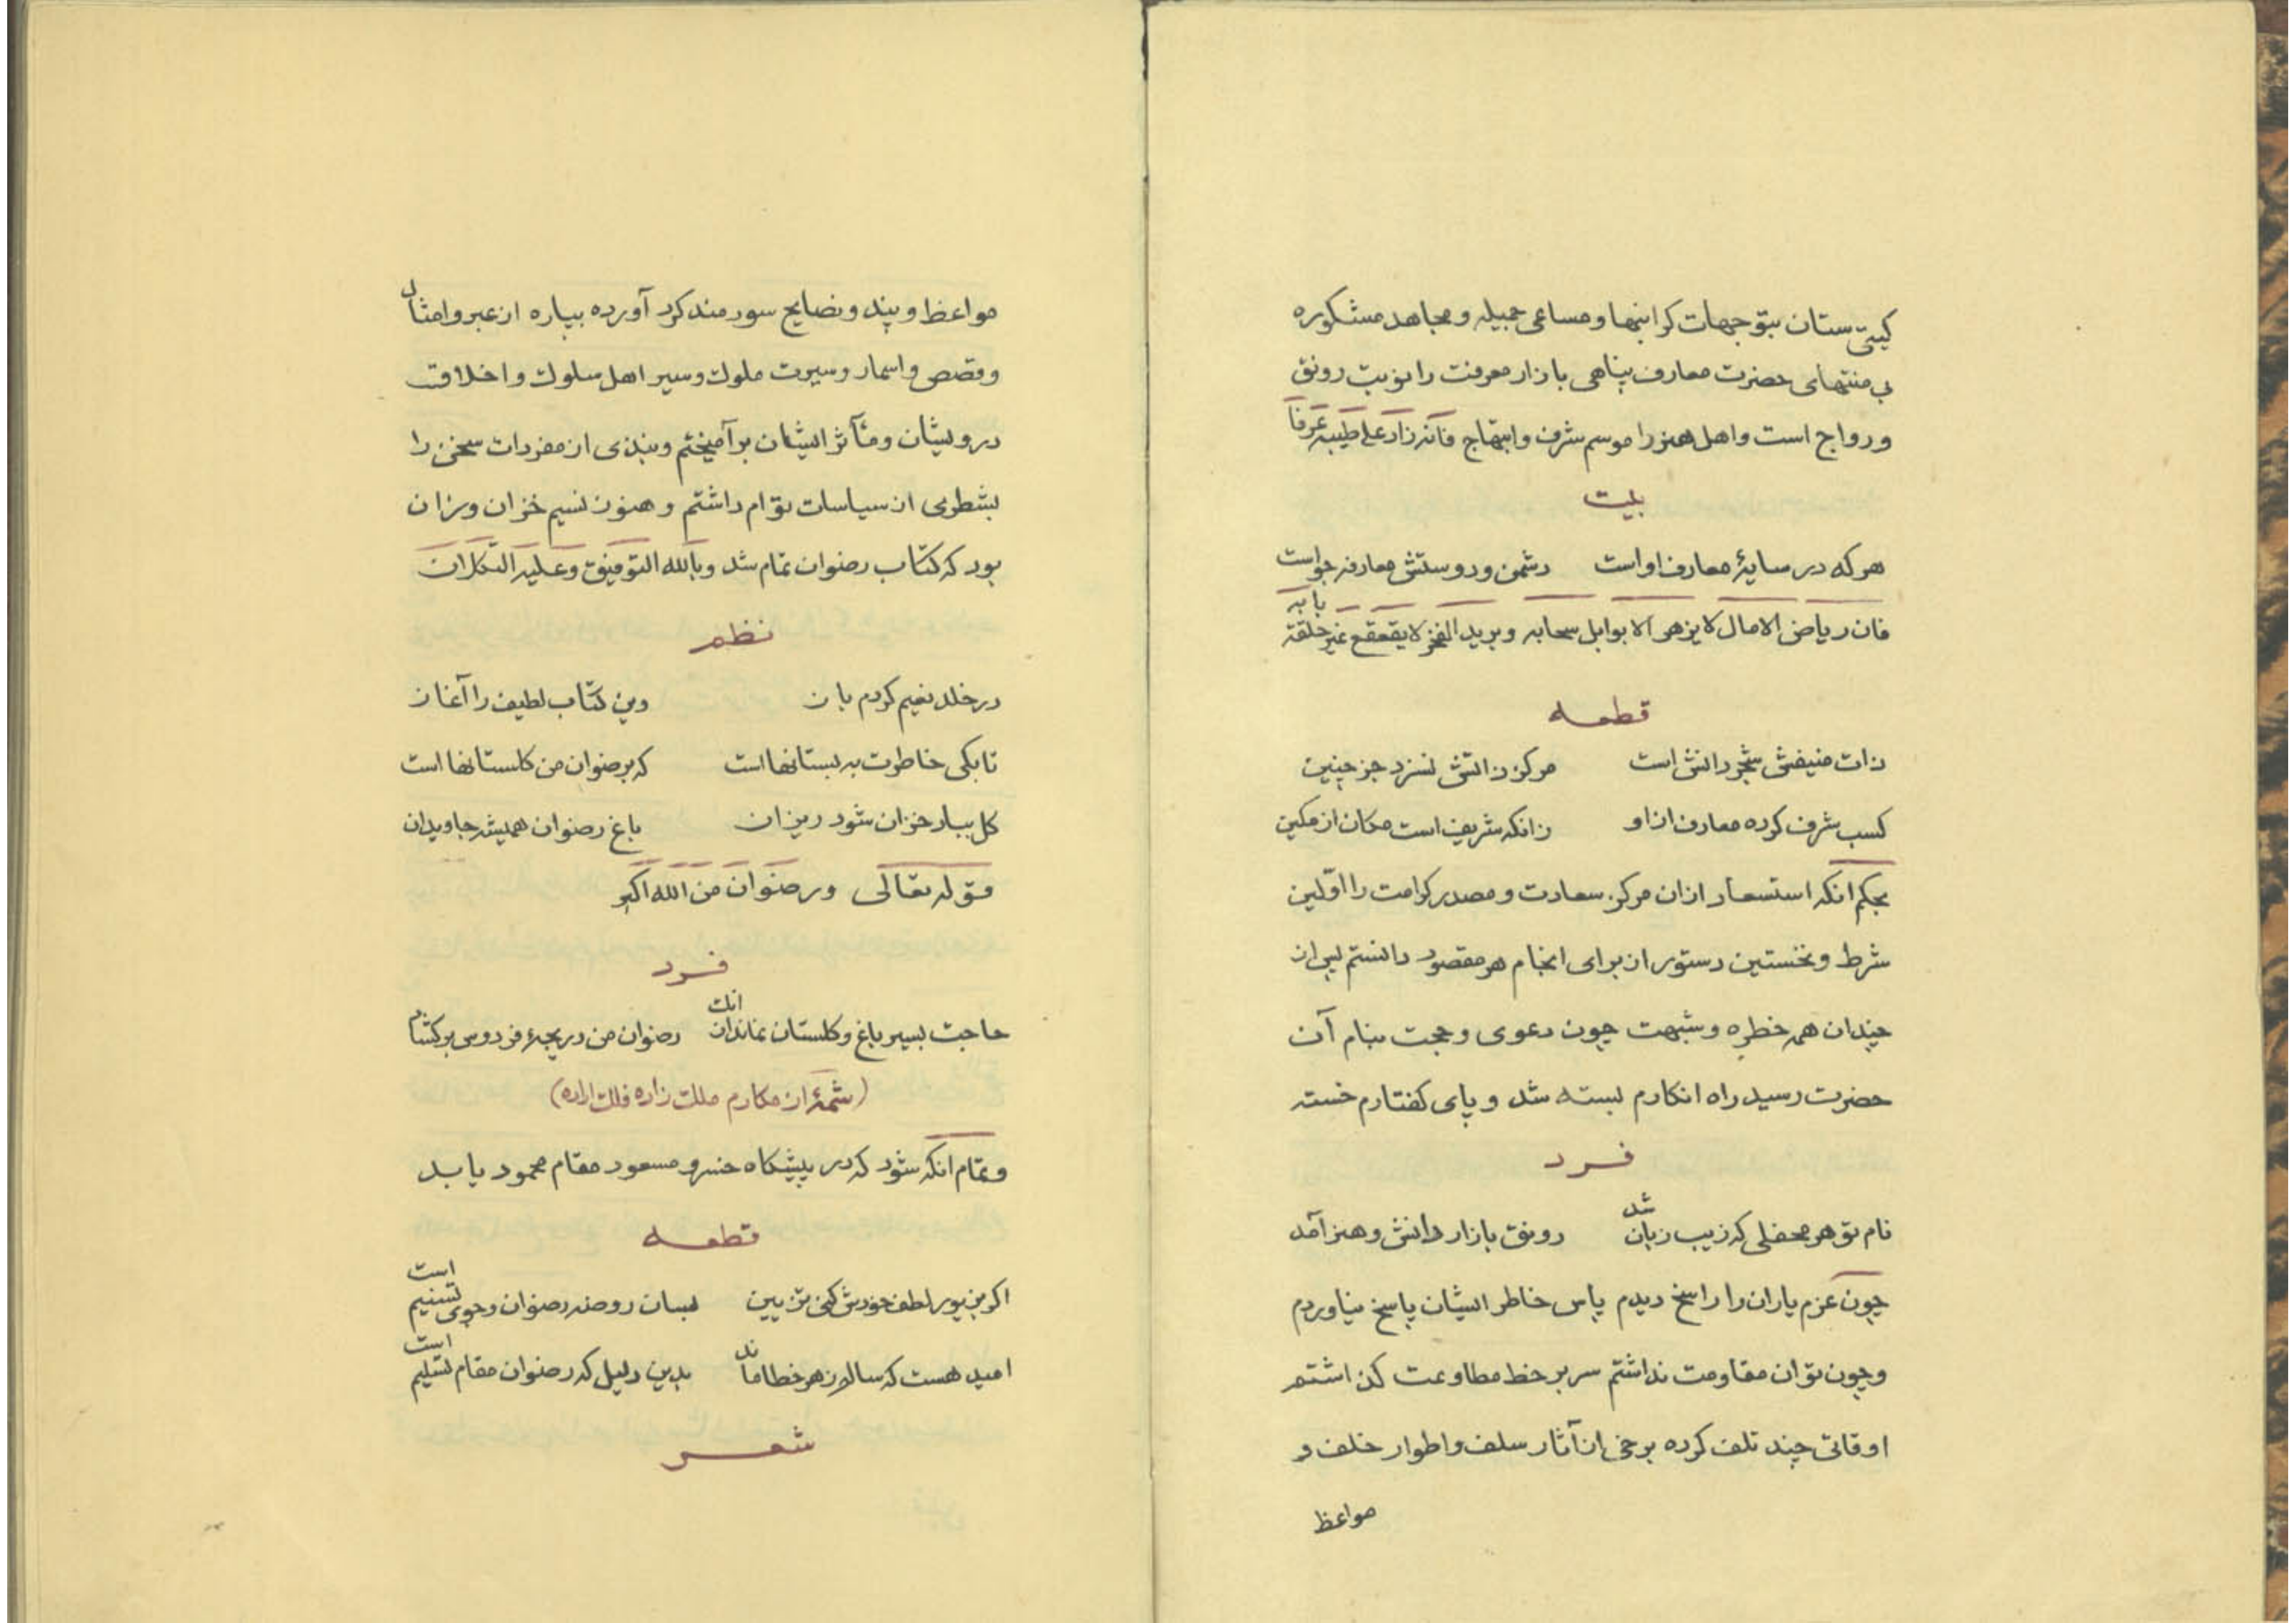 کیتی ستان بتوجهات کرانبها و مساعی جمیله و مجاهد مشکوره
بی منتهای حضرت معارف پناهی بازار معرفت را نوبت رونق
و رواج است و اهل هنر را موسم شرف و ابتهاج فانه زاد علی طیبه عرفاً
بیت
هر که در سایهٔ معارف اواست دشمن و دوستش معارفه جواست
فان ریاض الامال لا یزهر الا بوابل سحابه و برید الفخر لا یقعقع غیر حلقة بابه
قطعه
ذات منیفش شجر دانش است مرکز ذاتش نسزد جز چنین
کسب شرف کرده معارف از او زانکه شریف است مکان از مکین
بحکم انکه استسعاد از ان مرکز سعادت و مصدر کرامت را اوّلین
شرط و نخستین دستور از برای انجام هر مقصود دانستم پس از
چندان همه خطره و شبهت چون دعوی و حجت بنام آن
حضرت رسید راه انکارم بسته شد و پای کفتارم خسته
فرد
نام تو هر محفلی که زیب زبان شد رونق بازار دانش و هنر آمد
چون عزم یاران را راسخ دیدم پاس خاطر ایشان پاسخ نیاوردم
و چون توان مقاومت نداشتم سر بر خط مطاوعت کذاشتم
اوقاتی چند تلف کرده برخی از آثار سلف و اطوار خلف و
مواعظ
مواعظ و پند و نصایح سودمند کرد آورده بپاره از عبر و امثال
و قصص و اسمار و سیرت ملوک و سیر اهل سلوک و اخلاقت
درویشان و مآثر ایشان برآمیختم و نبذی از مفردات سخن را
بشطری از سیاسات توام داشتم و هنوز نسیم خزان وزان
بود که کتاب رضوان تمام شد و بالله التوفیق و علیه التکلان
نظم
در خلد نعیم کردم باز وین کتاب لطیف را آغاز
تا بکی خاطرت به بستانها است که برضوان من کلستانها است
کل ببار خزان شود ریزان باغ رضوان همیشه جاویدان
قوله تعالی و رضوان من الله اکبر
فرد
حاجت بسیر باغ و کلستان نماند از انک رضوان من دریچهٔ فردوس برکشاد
(شمهٔ از مکارم ملک زاده فلک اراده)
و تمام انکه شود که در پیشکاه خسرو مسعود مقام محمود یابد
قطعه
اکر بزیور لطف خودش کنی تزیین بسان روضه رضوان و جوی تسنیم است
امید هست که سالم ز هر خطا ماند بدین دلیل که رضوان مقام تسلیم است
شعر